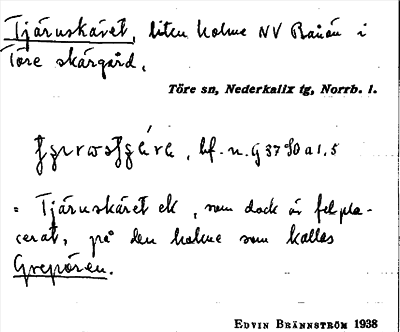 Tjäruskäret, liten holme NV Rånön i
Töre skärgård.
Töre sn, Nederkalix tg, Norrb. l.
bf. n. G 37 S0 a 1.5
= Tjäruskäret ek, som dock är felpla-
cerat, på den holme som kallas
Grepören.
EDVIN BRÄNNSTRÖM 1938